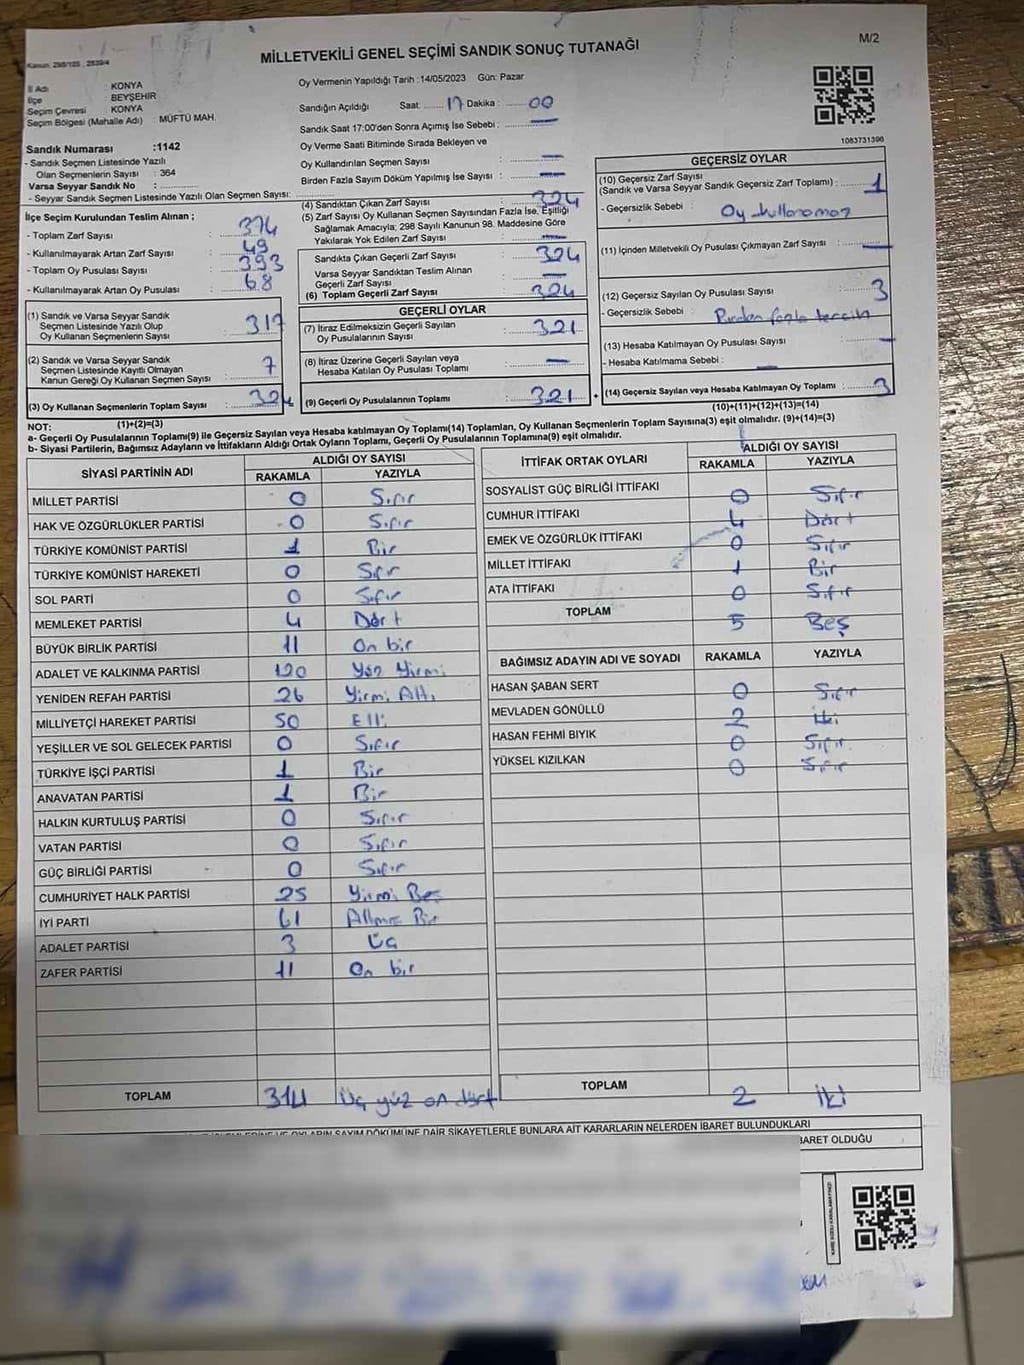 Kanun: 298/105 , 2839/4
MİLLETVEKİLİ GENEL SEÇİMİ SANDIK SONUÇ TUTANAĞI
M/2
İl Adı KONYA
İlçe BEYŞEHİR
Seçim Çevresi KONYA
Seçim Bölgesi (Mahalle Adı) MÜFTÜ MAH.
Sandık Numarası :1142
- Sandık Seçmen Listesinde Yazılı
Olan Seçmenlerin Sayısı : 364
Varsa Seyyar Sandık No :
- Seyyar Sandık Seçmen Listesinde Yazılı Olan Seçmen Sayısı:
İlçe Seçim Kurulundan Teslim Alınan ;
- Toplam Zarf Sayısı : 374
- Kullanılmayarak Artan Zarf Sayısı : 49
- Toplam Oy Pusulası Sayısı : 393
- Kullanılmayarak Artan Oy Pusulası : 68
(1) Sandık ve Varsa Seyyar Sandık
Seçmen Listesinde Yazılı Olup
Oy Kullanan Seçmenlerin Sayısı : 317
(2) Sandık ve Varsa Seyyar Sandık
Seçmen Listesinde Kayıtlı Olmayan
Kanun Gereği Oy Kullanan Seçmen Sayısı : 7
(3) Oy Kullanan Seçmenlerin Toplam Sayısı : 324
(1)+(2)=(3)
Oy Vermenin Yapıldığı Tarih :14/05/2023 Gün: Pazar
Sandığın Açıldığı Saat: 17 Dakika : 00
Sandık Saat 17:00'den Sonra Açımış İse Sebebi : —
Oy Verme Saati Bitiminde Sırada Bekleyen ve
Oy Kullandırılan Seçmen Sayısı : —
Birden Fazla Sayım Döküm Yapılmış İse Sayısı : —
(4) Sandıktan Çıkan Zarf Sayısı : 324
(5) Zarf Sayısı Oy Kullanan Seçmen Sayısından Fazla İse, Eşitliği
Sağlamak Amacıyla; 298 Sayılı Kanunun 98. Maddesine Göre
Yakılarak Yok Edilen Zarf Sayısı : —
Sandıkta Çıkan Geçerli Zarf Sayısı : 324
Varsa Seyyar Sandıktan Teslim Alınan
Geçerli Zarf Sayısı : —
(6) Toplam Geçerli Zarf Sayısı : 324
GEÇERLİ OYLAR
(7) İtiraz Edilmeksizin Geçerli Sayılan
Oy Pusulalarının Sayısı : 321
(8) İtiraz Üzerine Geçerli Sayılan veya
Hesaba Katılan Oy Pusulası Toplamı : —
(9) Geçerli Oy Pusulalarının Toplamı : 321
1083731396
GEÇERSİZ OYLAR
(10) Geçersiz Zarf Sayısı
(Sandık ve Varsa Seyyar Sandık Geçersiz Zarf Toplamı) : 1
- Geçersizlik Sebebi : Oy kullanamaz
(11) İçinden Milletvekili Oy Pusulası Çıkmayan Zarf Sayısı : —
(12) Geçersiz Sayılan Oy Pusulası Sayısı : 3
- Geçersizlik Sebebi : Birden fazla tercih
(13) Hesaba Katılmayan Oy Pusulası Sayısı : —
- Hesaba Katılmama Sebebi : —
(14) Geçersiz Sayılan veya Hesaba Katılmayan Oy Toplamı : 3
(10)+(11)+(12)+(13)=(14)
NOT:
a- Geçerli Oy Pusulalarının Toplamı(9) ile Geçersiz Sayılan veya Hesaba katılmayan Oy Toplamı(14) Toplamları, Oy Kullanan Seçmenlerin Toplam Sayısına(3) eşit olmalıdır. (9)+(14)=(3)
b- Siyasi Partilerin, Bağımsız Adayların ve İttifakların Aldığı Ortak Oyların Toplamı, Geçerli Oy Pusulalarının Toplamına(9) eşit olmalıdır.
SİYASİ PARTİNİN ADI ALDIĞI OY SAYISI
RAKAMLA YAZIYLA
MİLLET PARTİSİ 0 Sıfır
HAK VE ÖZGÜRLÜKLER PARTİSİ 0 Sıfır
TÜRKİYE KOMÜNİST PARTİSİ 1 Bir
TÜRKİYE KOMÜNİST HAREKETİ 0 Sıfır
SOL PARTİ 0 Sıfır
MEMLEKET PARTİSİ 4 Dört
BÜYÜK BİRLİK PARTİSİ 11 On bir
ADALET VE KALKINMA PARTİSİ 120 Yüz Yirmi
YENİDEN REFAH PARTİSİ 26 Yirmi Altı
MİLLİYETÇİ HAREKET PARTİSİ 50 Elli
YEŞİLLER VE SOL GELECEK PARTİSİ 0 Sıfır
TÜRKİYE İŞÇİ PARTİSİ 1 Bir
ANAVATAN PARTİSİ 1 Bir
HALKIN KURTULUŞ PARTİSİ 0 Sıfır
VATAN PARTİSİ 0 Sıfır
GÜÇ BİRLİĞİ PARTİSİ 0 Sıfır
CUMHURİYET HALK PARTİSİ 25 Yirmi Beş
İYİ PARTİ 61 Altmış Bir
ADALET PARTİSİ 3 Üç
ZAFER PARTİSİ 11 On bir
TOPLAM 314 Üç yüz on dört
İTTİFAK ORTAK OYLARI ALDIĞI OY SAYISI
RAKAMLA YAZIYLA
SOSYALİST GÜÇ BİRLİĞİ İTTİFAKI 0 Sıfır
CUMHUR İTTİFAKI 4 Dört
EMEK VE ÖZGÜRLÜK İTTİFAKI 0 Sıfır
MİLLET İTTİFAKI 1 Bir
ATA İTTİFAKI 0 Sıfır
TOPLAM 5 Beş
BAĞIMSIZ ADAYIN ADI VE SOYADI RAKAMLA YAZIYLA
HASAN ŞABAN SERT 0 Sıfır
MEVLADEN GÖNÜLLÜ 2 İki
HASAN FEHMİ BIYIK 0 Sıfır
YÜKSEL KIZILKAN 0 Sıfır
TOPLAM 2 İki
OYLARIN SAYIM DÖKÜMÜNE DAİR ŞİKAYETLERLE BUNLARA AİT KARARLARIN NELERDEN İBARET BULUNDUKLARI
İBARET OLDUĞU